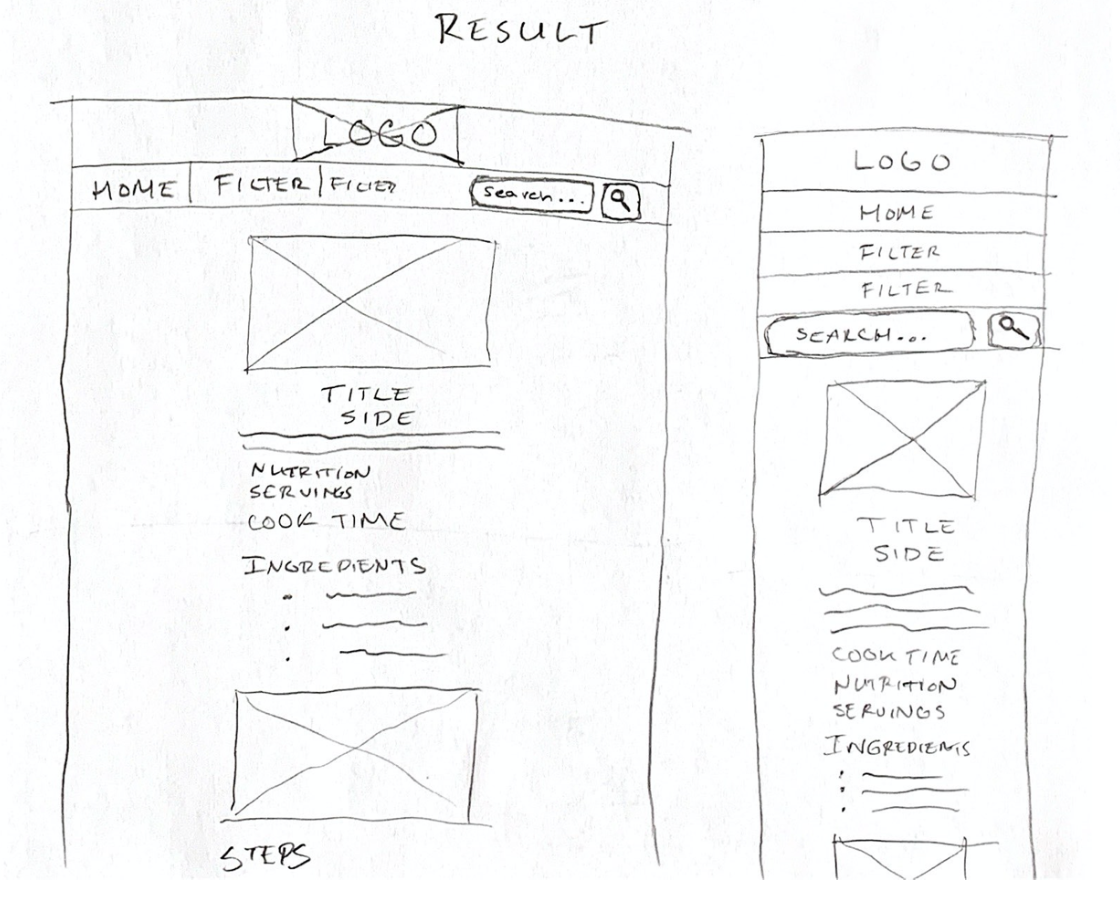 RESULT
LOGO
HOME FILTER FILTER search...
TITLE
SIDE
NUTRITION
SERVINGS
COOK TIME
INGREDIENTS
STEPS
LOGO
HOME
FILTER
FILTER
SEARCH...
TITLE
SIDE
COOK TIME
NUTRITION
SERVINGS
INGREDIENTS